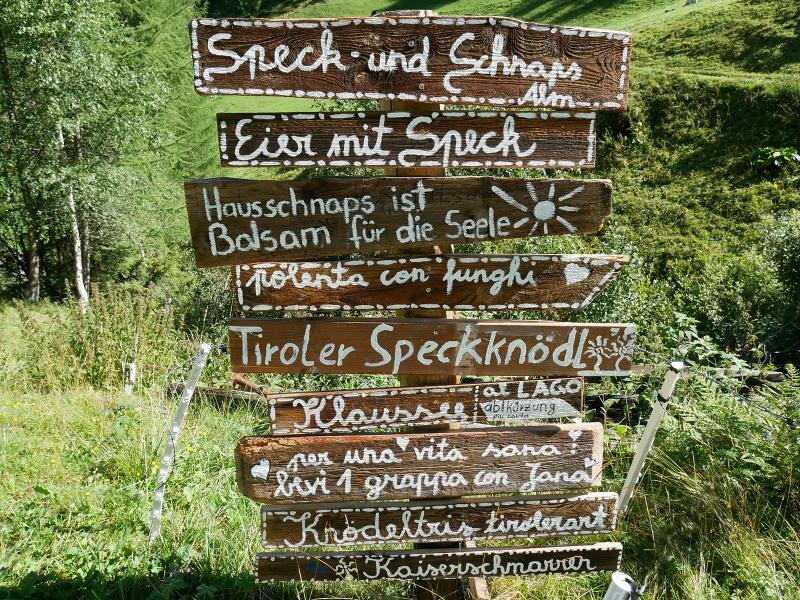 Speck-und Schnaps
Alm
Eier mit Speck
Hausschnaps ist
Balsam für die Seele
polenta con funghi
Tiroler Speckknödl
Klaussee
al LAGO
abkürzung
più corta
per una vita sana!
bevi 1 grappa con Jana
Knödeltris tirolerart
Kaiserschmarren